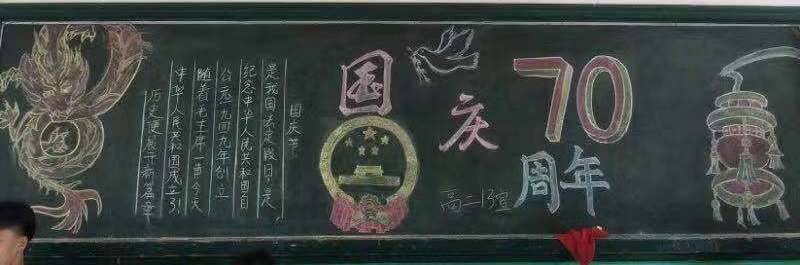 国庆节
是我国法定假日,是
纪念中华人民共和国自
公元一九四九年创立
随着毛主席一声今天
中华人民共和国成立了,
历史便展开新篇章
国庆
70
周年
高二13宣